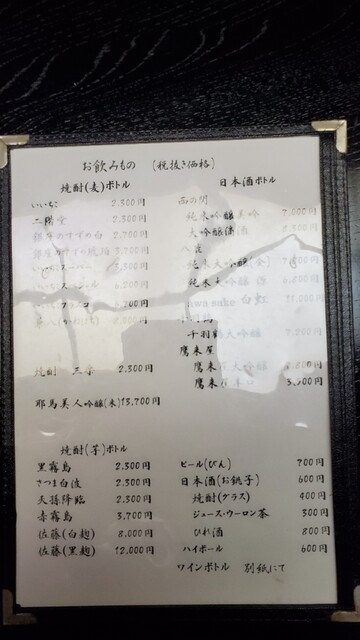 お飲みもの (税抜き価格)
焼酎(麦)ボトル
いいちこ 2,300円
二階堂 2,300円
銀座のすずめ白 2,700円
銀座のすずめ琥珀 3,700円
いいちこスーパー 3,300円
いいちこスペシャル
いいちこフラスコ
焼酎 2,300円
耶馬美人吟醸(米) 13,700円
焼酎(芋)ボトル
黒霧島 2,300円
さつま白波 2,300円
天孫降臨 2,300円
赤霧島 3,700円
佐藤(白麹) 8,000円
佐藤(黒麹) 12,000円
日本酒ボトル
西の関
純米吟醸美吟 7,000円
大吟醸滴酒
八鹿
純米大吟醸(金)
純米大吟醸
awa sake 白虹
千羽鶴大吟醸
鷹来屋
鷹来
鷹来 3,500円
ビール(びん) 700円
日本酒(お銚子) 600円
焼酎(グラス) 400円
ジュース・ウーロン茶 300円
ひれ酒 800円
ハイボール 600円
ワインボトル 別紙にて